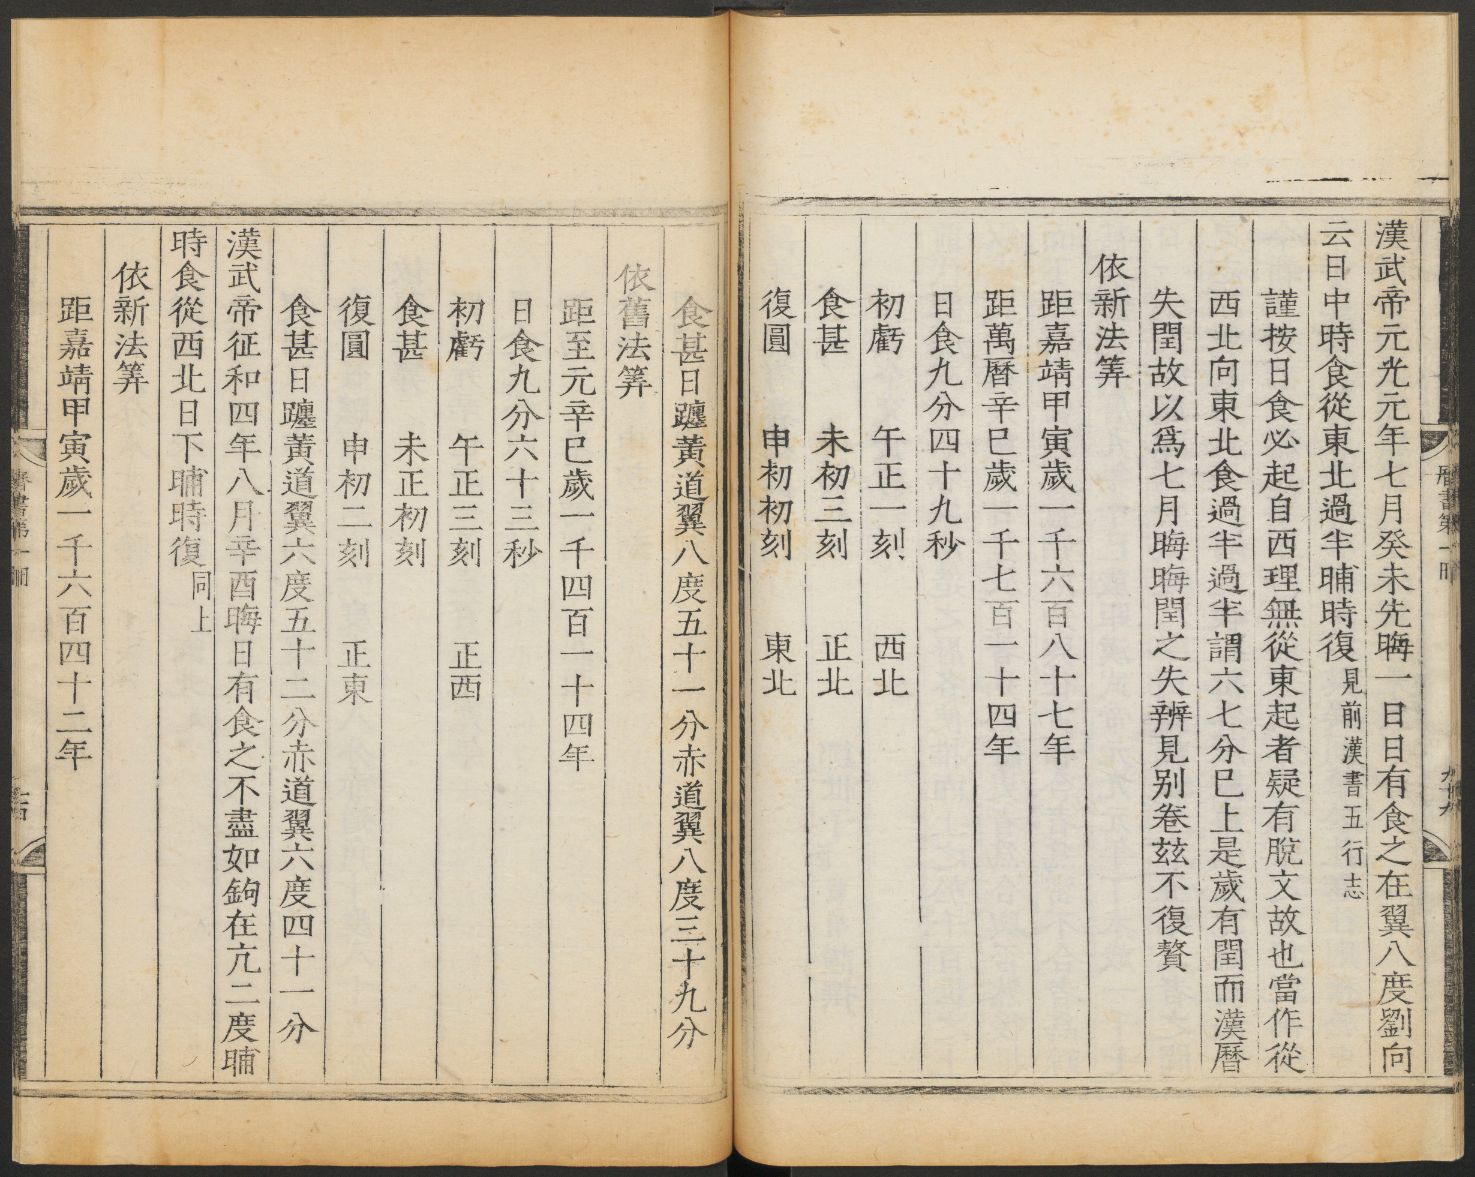 漢武帝元光元年七月癸未先晦一日日有食之在翼八度劉向
云日中時食從東北過半晡時復見前漢書五行志
謹按日食必起自西理無從東起者疑有脫文故也當作從
西北向東北食過半過半謂六七分已上是歲有閏而漢曆
失閏故以為七月晦晦閏之失辨見别卷玆不復贅
依新法筭
距嘉靖甲寅歲一千六百八十七年
距萬曆辛巳歲一千七百一十四年
日食九分四十九秒
初虧 午正一刻 西北
食甚 未初三刻 正北
復圓 申初初刻 東北
食甚日躔黃道翼八度五十一分赤道翼八度三十九分
依舊法筭
距至元辛巳歲一千四百一十四年
日食九分六十三秒
初虧 午正三刻 正西
食甚 未正初刻
復圓 申初二刻 正東
食甚日躔黃道翼六度五十二分赤道翼六度四十一分
漢武帝征和四年八月辛酉晦日有食之不盡如鉤在亢二度晡
時食從西北日下晡時復同上
依新法筭
距嘉靖甲寅歲一千六百四十二年